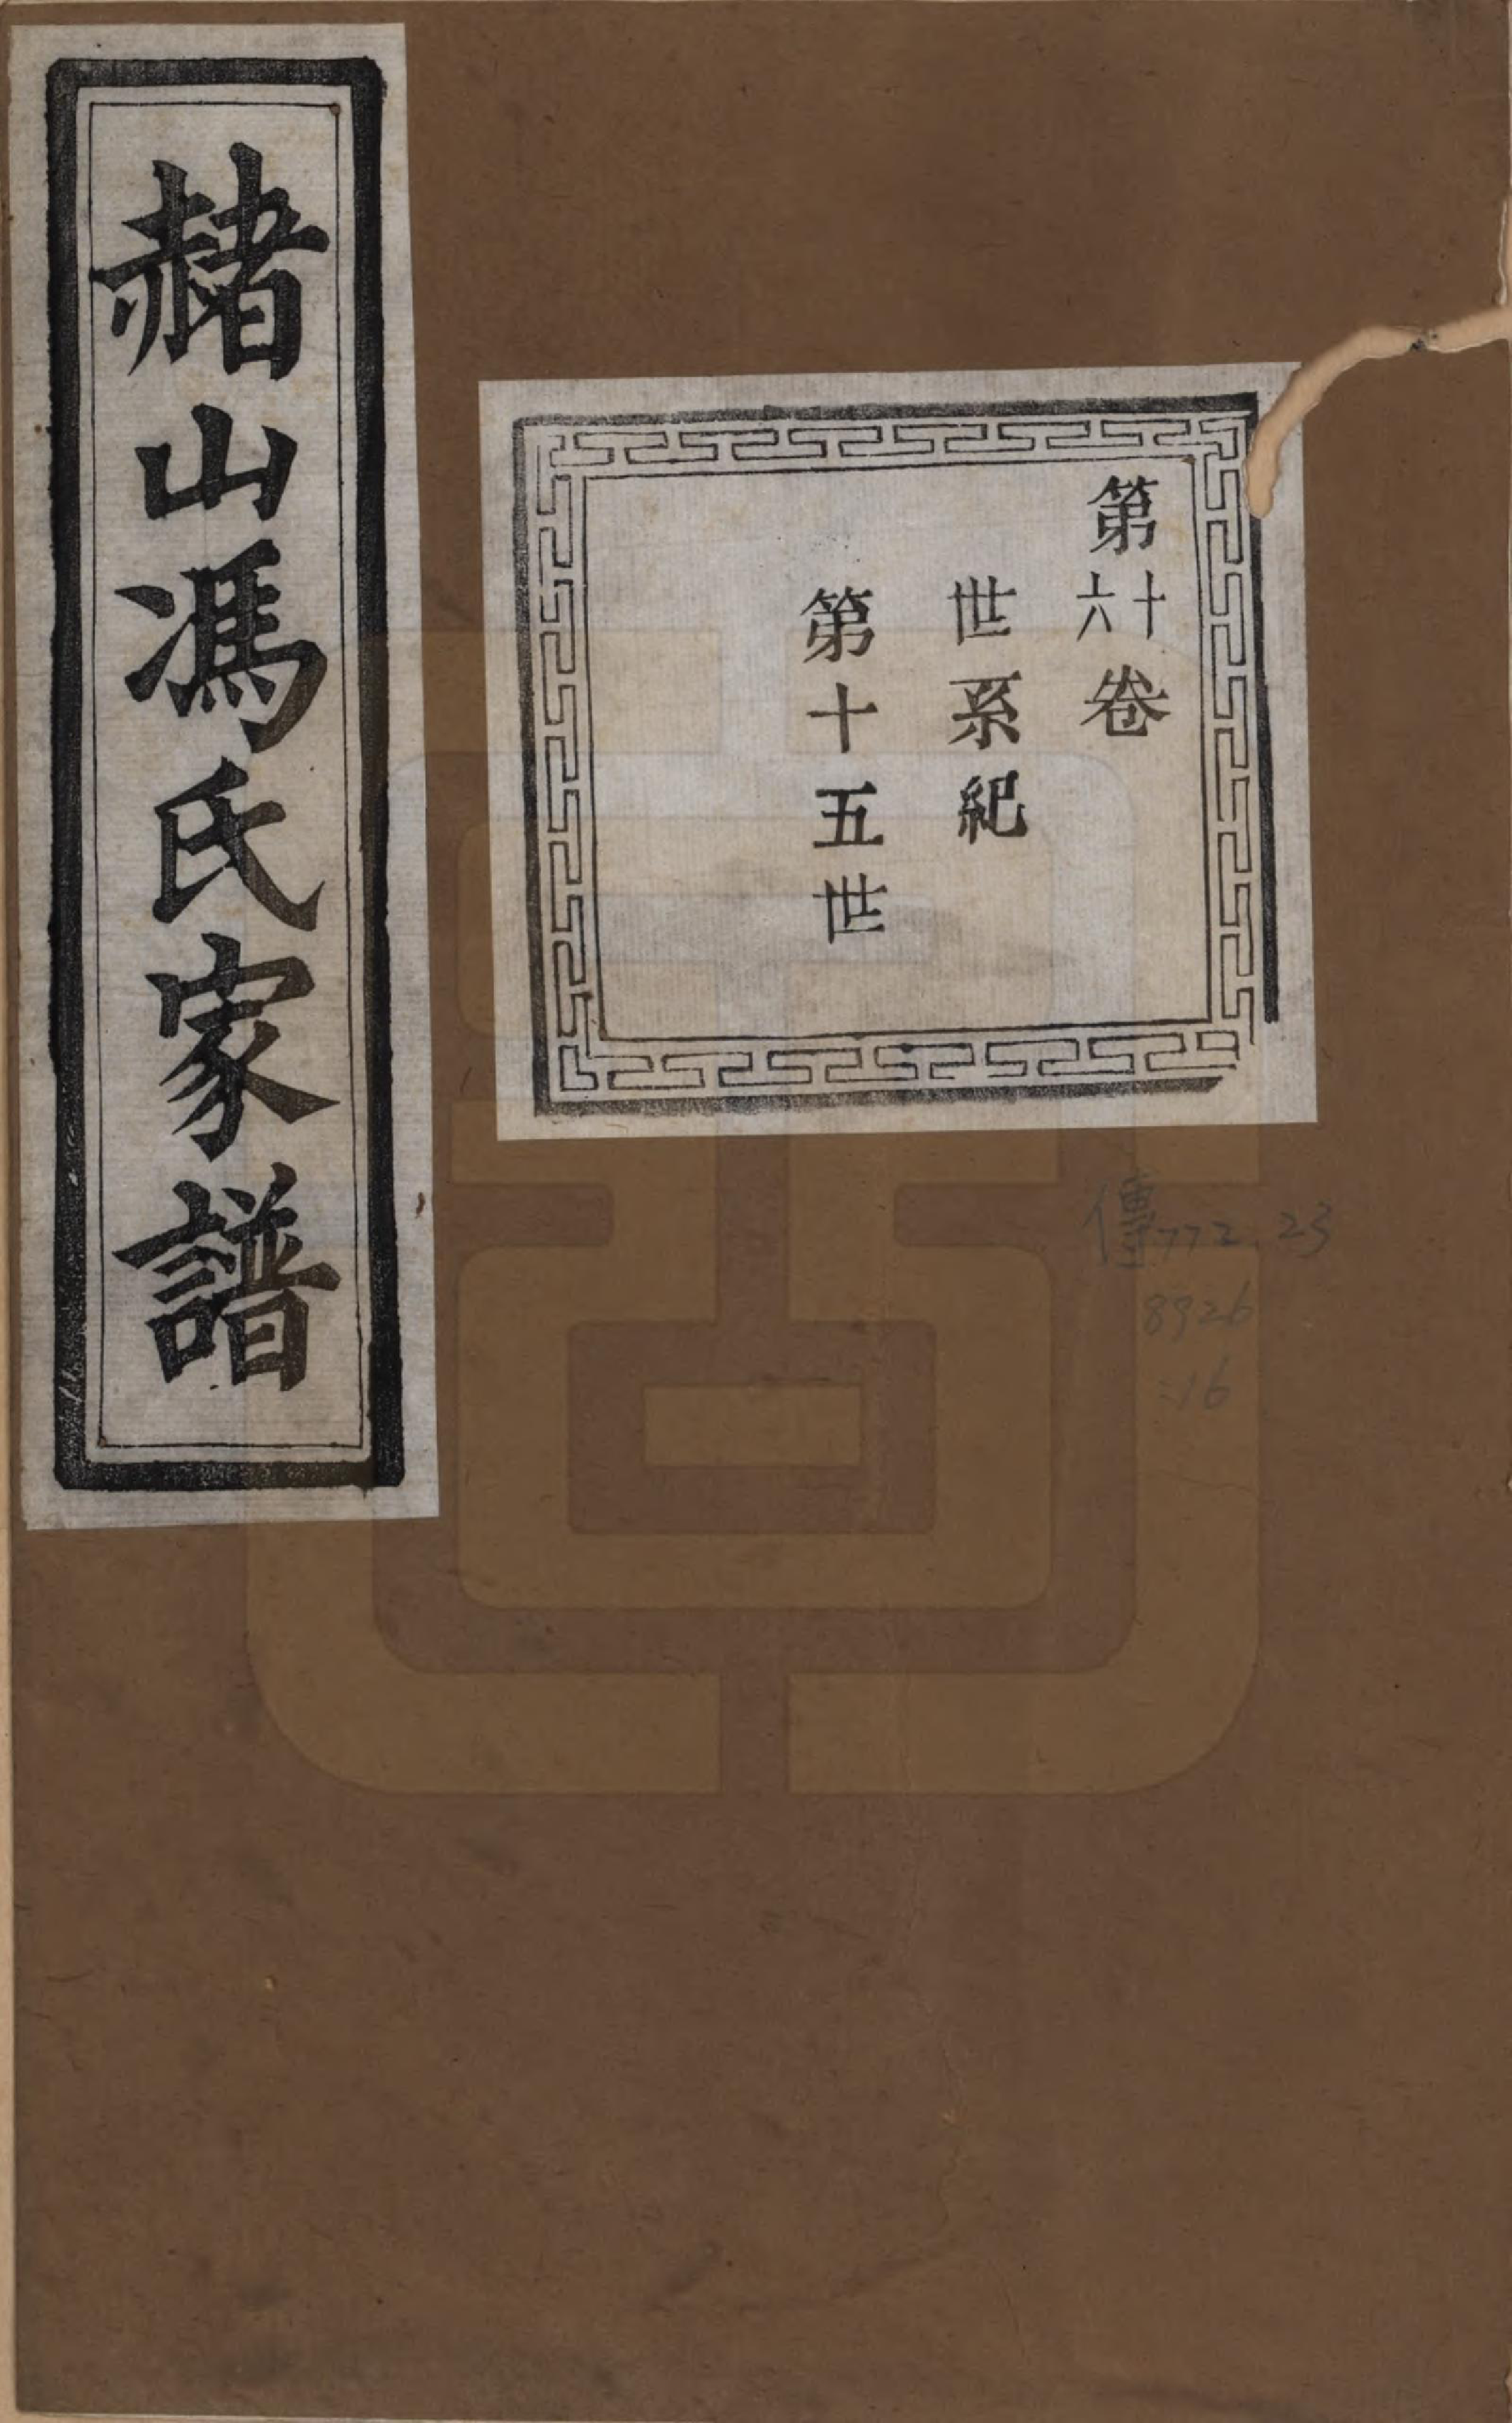 赭山馮氏家譜
第十六卷
世系紀
第十五世
傳772.23
8926
:16